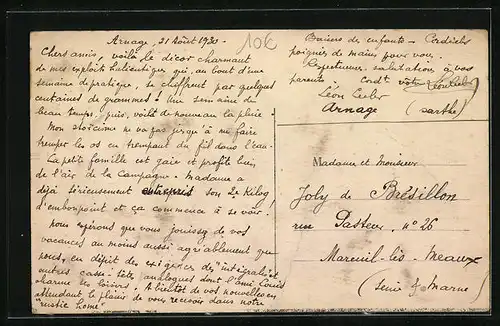 Arnage, 21 Août 1930
10€
Chers amis, voilà le décor charmant
de mes exploits halieutiques qui, au bout d'une
semaine de pratique, se chiffrent par quelques
centaines de grammes! Une semaine de
beau temps, puis, voilà de nouveau la pluie.
Mon stoïcisme ne va pas jusqu'à me faire
tremper les os en trempant du fil dans l'eau.
La petite famille est gaie et profite bien
de l'air de la Campagne. Madame a
déjà sérieusement entrepris son 2e Kilog.
d'embonpoint et ça commence à se voir.
Nous espérons que vous jouissez de vos
vacances au moins aussi agréablement que
nous, en dépit des exigences des "intégrales" et
autres casse-tête analogues dont l'ami Louis
charme ses loisirs. A bientôt de vos nouvelles en
attendant le plaisir de vous recevoir dans notre
"rustic home".
Baisers des enfants - Cordiales
poignées de mains pour vous.
Respectueuses salutations à vos
parents. Cordt
Léon
Arnage (Sarthe)
Madame et Monsieur
Joly de Brésillon
rue Pasteur, n° 26
Mareuil-lès-Meaux
(Seine & Marne)